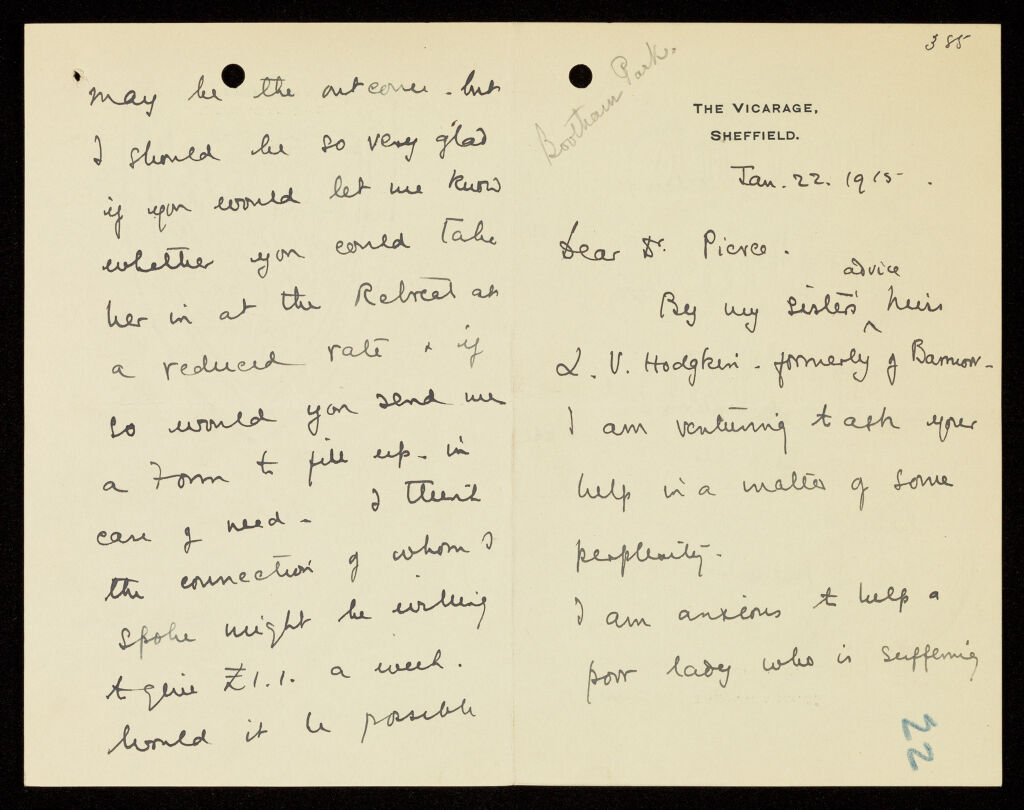 may be the outcome - but
I should be so very glad
if you would let me know
whether you could take
her in at the Retreat at
a reduced rate & if
so would you send me
a Form to fill up - in
case of need - I think
the connection of whom I
spoke might be willing
to give £1.1. a week.
Would it be possible
385
Bootham Park.
THE VICARAGE,
SHEFFIELD.
Jan. 22. 1915.
Dear Dr. Pierce.
advice
By my sister's
L. V. Hodgkin - formerly of
I am venturing to ask your
help in a matter of some
perplexity.
I am anxious to help a
poor lady who is suffering
22